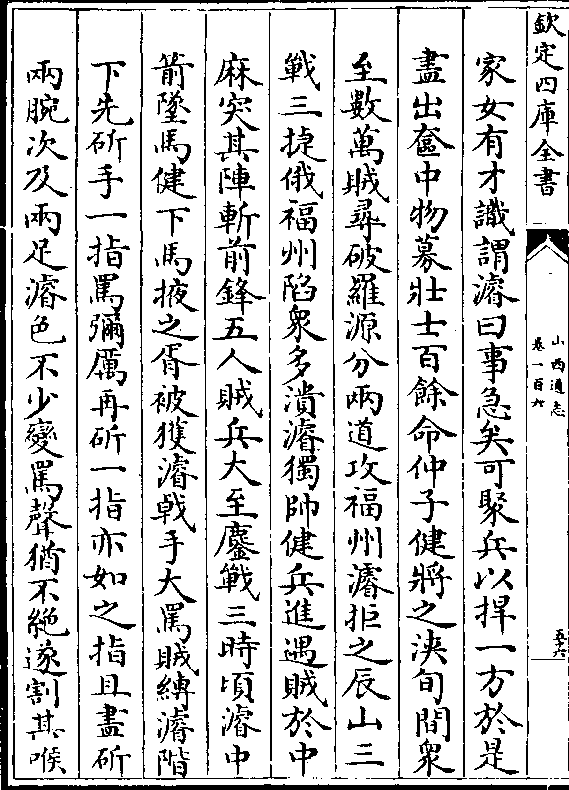 欽定四庫全書
山西通志
卷一百六
五十六
家女有才識謂濬曰事急矣可聚兵以捍一方於是
盡出奩中物募壯士百餘命仲子健將之浹旬間衆
至數萬賊尋破羅源分兩道攻福州濬拒之辰山三
戰三捷俄福州陷衆多潰濬獨帥健兵進遇賊於中
麻突其陣斬前鋒五人賊兵大至鏖戰三時頃濬中
箭墜馬健下馬掖之胥被獲濬戟手大罵賊縛濬階
下先斫手一指罵彌厲再斫一指亦如之指且盡斫
兩腕次及兩足濬色不少變罵聲猶不絶遂割其喉